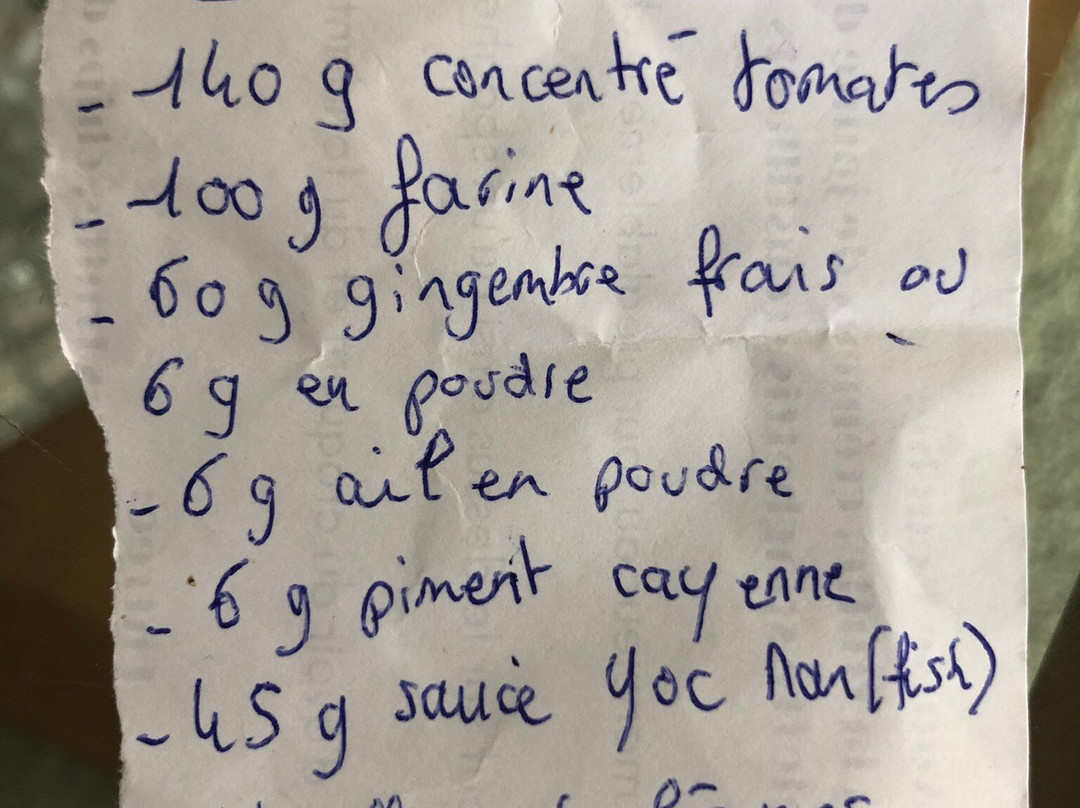 - 140 g concentré tomates
- 100 g farine
- 60 g gingembre frais ou
6 g en poudre
- 6 g ail en poudre
- 6 g piment cayenne
- 45 g sauce yoc nan (fish)